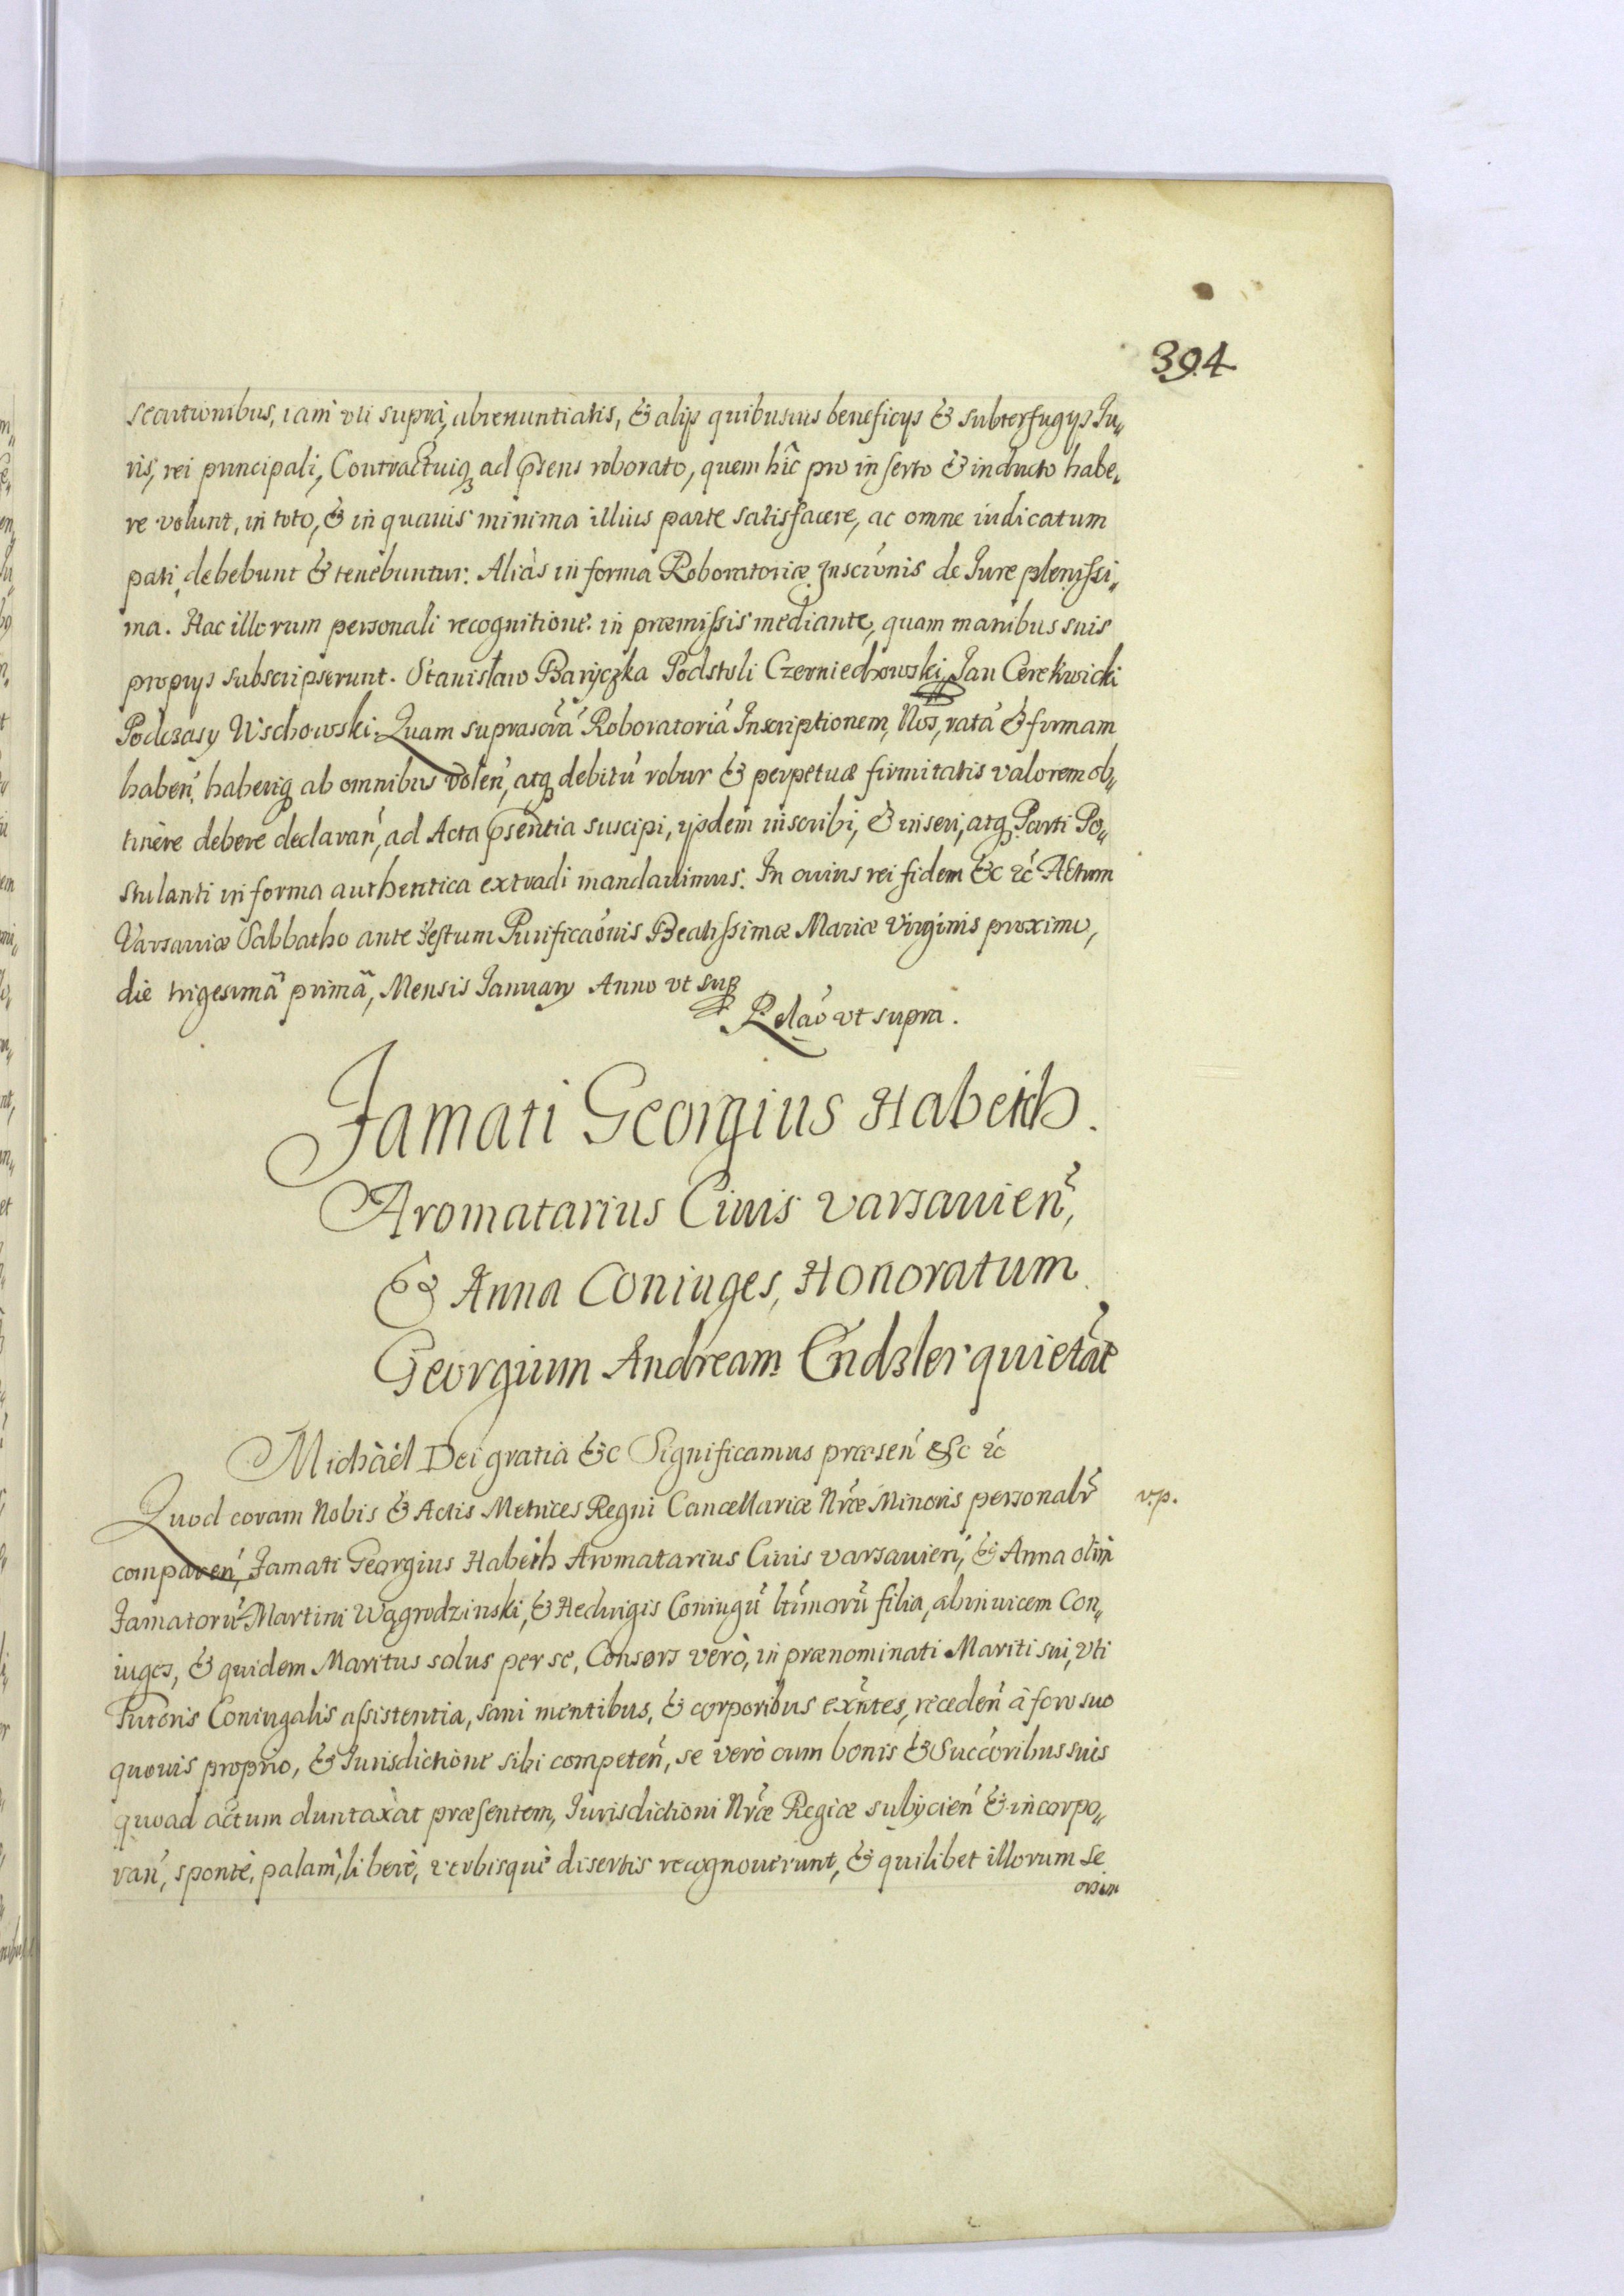 394
secutionibus, iam vti suprà, abrenuntiatis, & alijs quibusuis beneficijs & subterfugijs Ju„
ris, rei principali, Contractuiq₃ ad p̄sens roborato, quem hîc pro inserto & inducto habe„
re volunt, in toto, & in quauis minima illius parte satisfacere, ac omne iudicatum
pati, debebunt & tenebuntur. Aliàs in forma Roboratoriæ Inscrōnis de Jure plenissi„
ma. Hac illorum personali recognitione in præmissis mediante, quam manibus suis
proprijs subscripserunt. Stanisław Baryczka Podstoli Czerniechowski, Jan Cerekwicki
Podczasy Wschowski. Quam suprascr̄ā Roboratoriā Inscriptionem, Nos, ratā & firmam
haben̄, haberiq₃ ab omnibus volen̄, atq₃ debitū robur & perpetuæ firmitatis valorem ob„
tinere debere declaran̄, ad Acta p̄sentia suscipi, ijsdem inscribi, & inseri, atq₃ Parti Po„
stulanti in forma authentica extradi mandauimus. In cuius rei fidem &c &c Actum
Varsauiæ Sabbatho ante Festum Purificaōnis Beatissimæ Mariæ Virginis proximo,
die trigesimâ primâ, Mensis January Anno vt sup̄
Relaō vt supra.
Famati Georgius Habeich.
Aromatarius Ciuis Varsauien̄,
& Anna Coniuges, Honoratum
Georgium Andream Endzler quietāt
Michàèl Dei gratia &c Significamus præsen̄ &c &c
Quod coram Nobis & Actis Metrices Regni Cancellariæ Nr̄æ Minoris personalr̄ v.p.
comparen̄, Famati Georgius Habeich Aromatarius Ciuis Varsauien̄, & Anna olim
Famatorū Martini Wągrodzinski, & Hedvigis Coniugū ltīmorū filia, abinuicem Con„
iuges, & quidem Maritus solus per se, Consors verò, in prænominati Mariti sui, vti
Tutoris Coniugalis assistentia, sani mentibus, & corporibus exn̄tes, receden̄ à foro suo
quouis proprio, & Jurisdictione sibi competen̄, se verò cum bonis & Succōribus suis
quoad actum duntaxàt præsentem, Jurisdictioni Nr̄æ Regiæ subijcien̄ & incorpo„
ran̄, spontè, palàm, liberè, verbisquè disertis recognouerunt, & quilibet illorum se
orsim